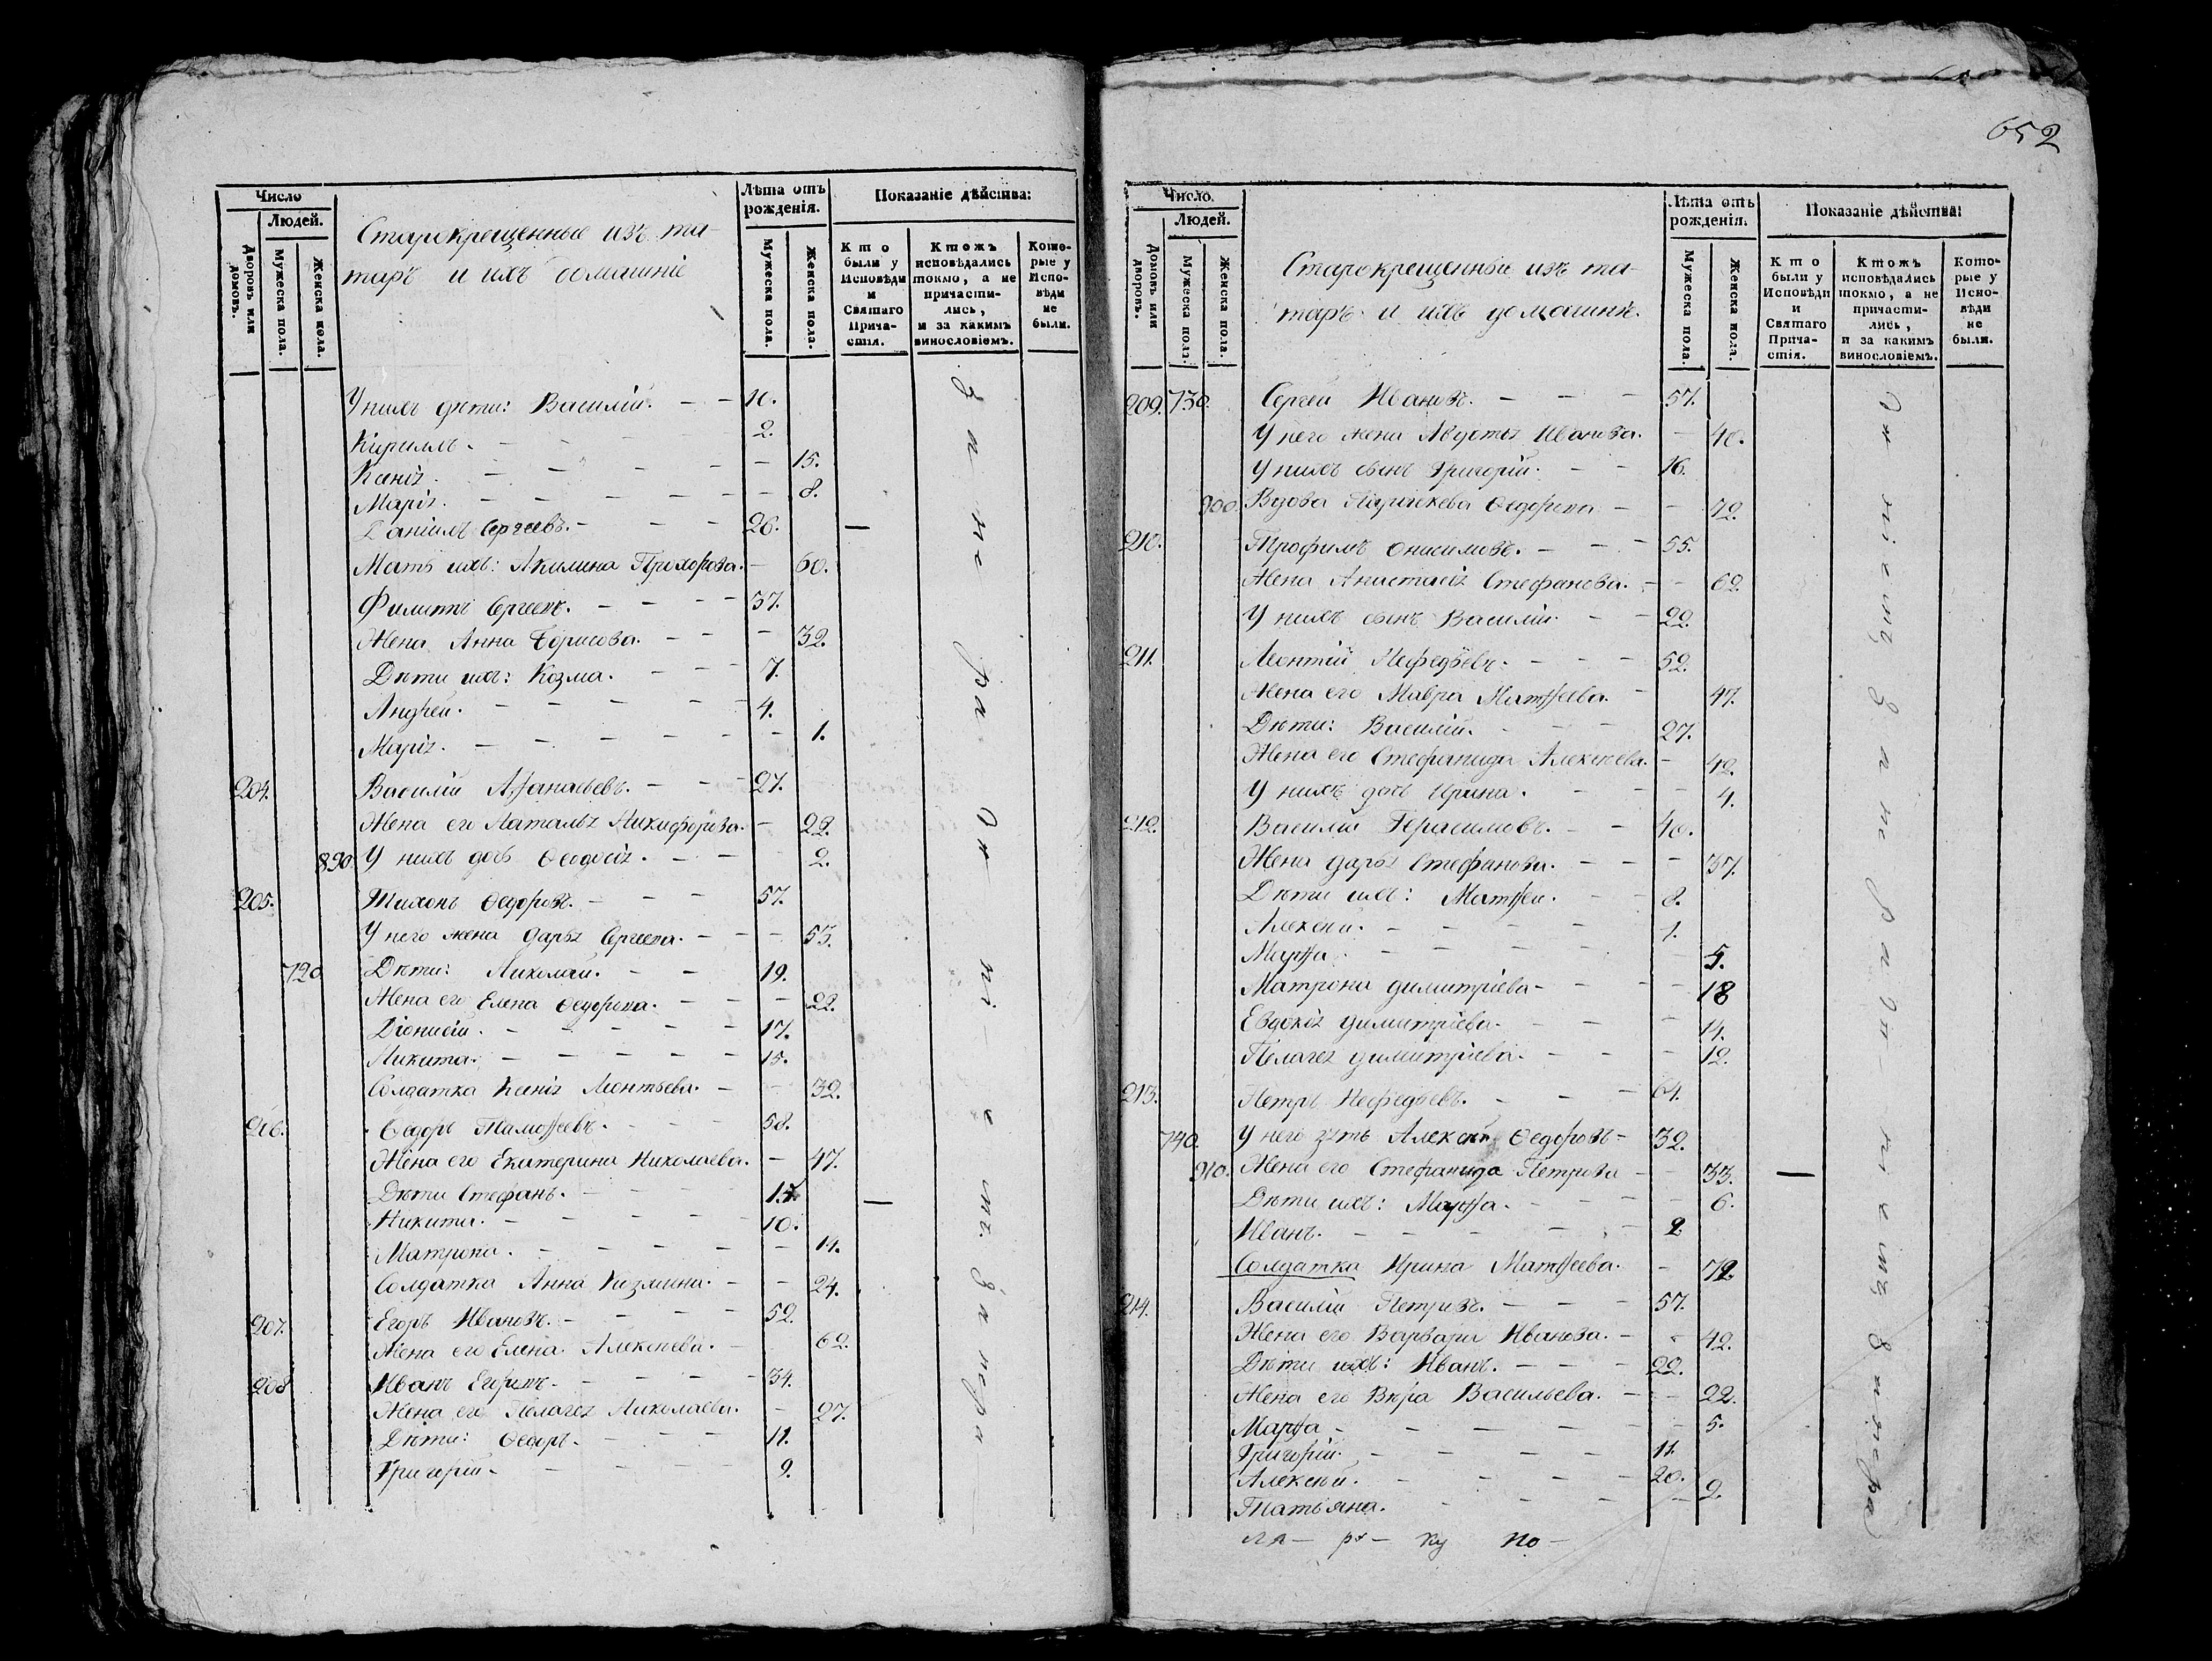 Число
Людей.
Дворовъ или домовъ.
Мужеска пола.
Женска пола.
Старокрещенные изъ та-
таръ и ихъ домашніе
Лѣта отъ
рожденія.
Мужеска пола.
Женска пола.
Показаніе дѣйства:
Кто
были у
Исповѣди
и
Святаго
Прича-
стія.
Ктожъ
исповѣдались
токмо, а не
причасти-
лись,
и за какимъ
винословіемъ.
Кото-
рые у
Испо-
вѣди
не
были.
У нихъ дѣти: Василій. 10.
Кириллъ. 2.
Ксенія. 15.
Марія. 8.
Даніилъ Сергеевъ. 26.
Мать ихъ: Акилина Прохорова. 60.
Филиппъ Сергеевъ. 37.
Жена Анна Борисова. 32.
Дѣти ихъ: Козма. 7.
Андрей. 4.
Марія. 1.
204. Василій Афанасьевъ. 27.
Жена его Наталья Никифорова. 22.
890 У нихъ дочь Ѳеодосія. 2.
205. Тихонъ Ѳедоровъ. 57.
У него жена Дарья Сергеева. 53.
720 Дѣти: Николай. 19.
Жена его Елена Ѳедорова. 22.
Діонисій. 17.
Никита. 15.
Солдатка Ксенія Леонтьева. 32.
206. Ѳедоръ Тимоѳеевъ. 58.
Жена его Екатерина Николаева. 47.
Дѣти Стефанъ.
Никита. 10.
Матрона. 14.
Солдатка Анна Козмина. 24.
207. Егоръ Ивановъ. 52.
Жена его Елена Алексѣева. 62.
208 Иванъ Егоровъ. 34.
Жена его Пелагея Николаева. 27.
Дѣти: Ѳедоръ. 11.
Григорій. 9.
652
Число.
Людей.
Домовъ или дворовъ.
Мужеска пола.
Женска пола.
Старокрещенные изъ та-
таръ и ихъ домашніе.
Лѣта отъ
рожденія.
Мужеска пола.
Женска пола.
Показаніе дѣйства:
Кто
были у
Исповѣди
и
Святаго
Прича-
стія.
Ктожъ
исповѣдались
токмо, а не
причасти-
лись,
и за какимъ
винословіемъ.
Кото-
рые у
Испо-
вѣди
не
были.
209. 730. Сергей Ивановъ. 57.
У него жена Авдотья Иванова. 40.
У нихъ сынъ Григорій. 16.
900 Вдова Ѳедорова 72.
210. Трофимъ Онисимовъ. 55.
Жена Анастасія Стефанова. 62.
У нихъ сынъ Василій. 22.
211. Леонтій Нефедьевъ. 52.
Жена его Мавра Матѳеева. 47.
Дѣти: Василій. 27.
Жена его Стефанида Алексѣева. 42.
У нихъ дочь Ирина. 4.
212. Василій Герасимовъ. 40.
Жена Дарья Стефанова. 37.
Дѣти ихъ: Матѳей. 8.
Алексѣй. 1.
Марѳа. 5.
Матрона Димитріева 18
Евдокія Димитріева. 14.
Пелагея Димитріева. 12.
213. Петръ Нефедьевъ. 64.
740. У него зять Алексѣй Ѳедоровъ 32.
910. Жена его Стефанида Петрова 33.
Дѣти ихъ: Марѳа. 6.
Иванъ. 2
Солдатка Ирина Матѳеева. 72.
214. Василій Петровъ. 57.
Жена его Варвара Иванова. 42.
Дѣти ихъ: Иванъ. 22.
Жена его Вѣра Васильева. 22.
Марѳа 5.
Григорій. 11.
Алексѣй. 20.
Татьяна. 2.
ру ку по